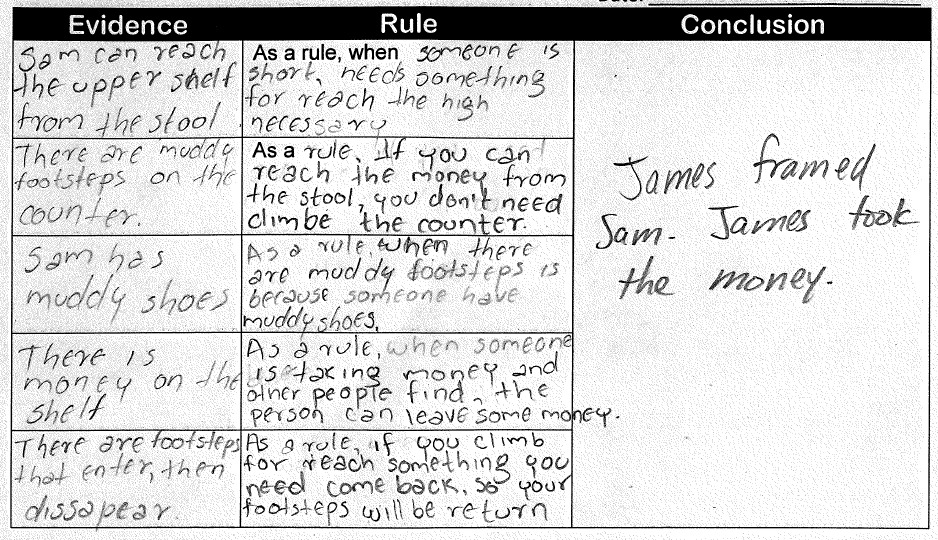 Evidence
Rule
Conclusion
Sam can reach
the upper shelf
from the stool.
As a rule, when someone is
short, needs something
for reach the high
necessary
There are muddy
footsteps on the
counter.
As a rule, If you can
reach the money from
the stool, you don't need
climbe the counter.
Sam has
muddy shoes
As a rule, when there
are muddy footsteps is
because someone have
muddy shoes.
There is
money on the
shelf
As a rule, when someone
is taking money and
other people find, the
person can leave some money.
There are footsteps
that enter, then
dissapear.
As a rule, if you climb
for reach something you
need come back, so your
footsteps will be return
James framed
Sam. James took
the money.